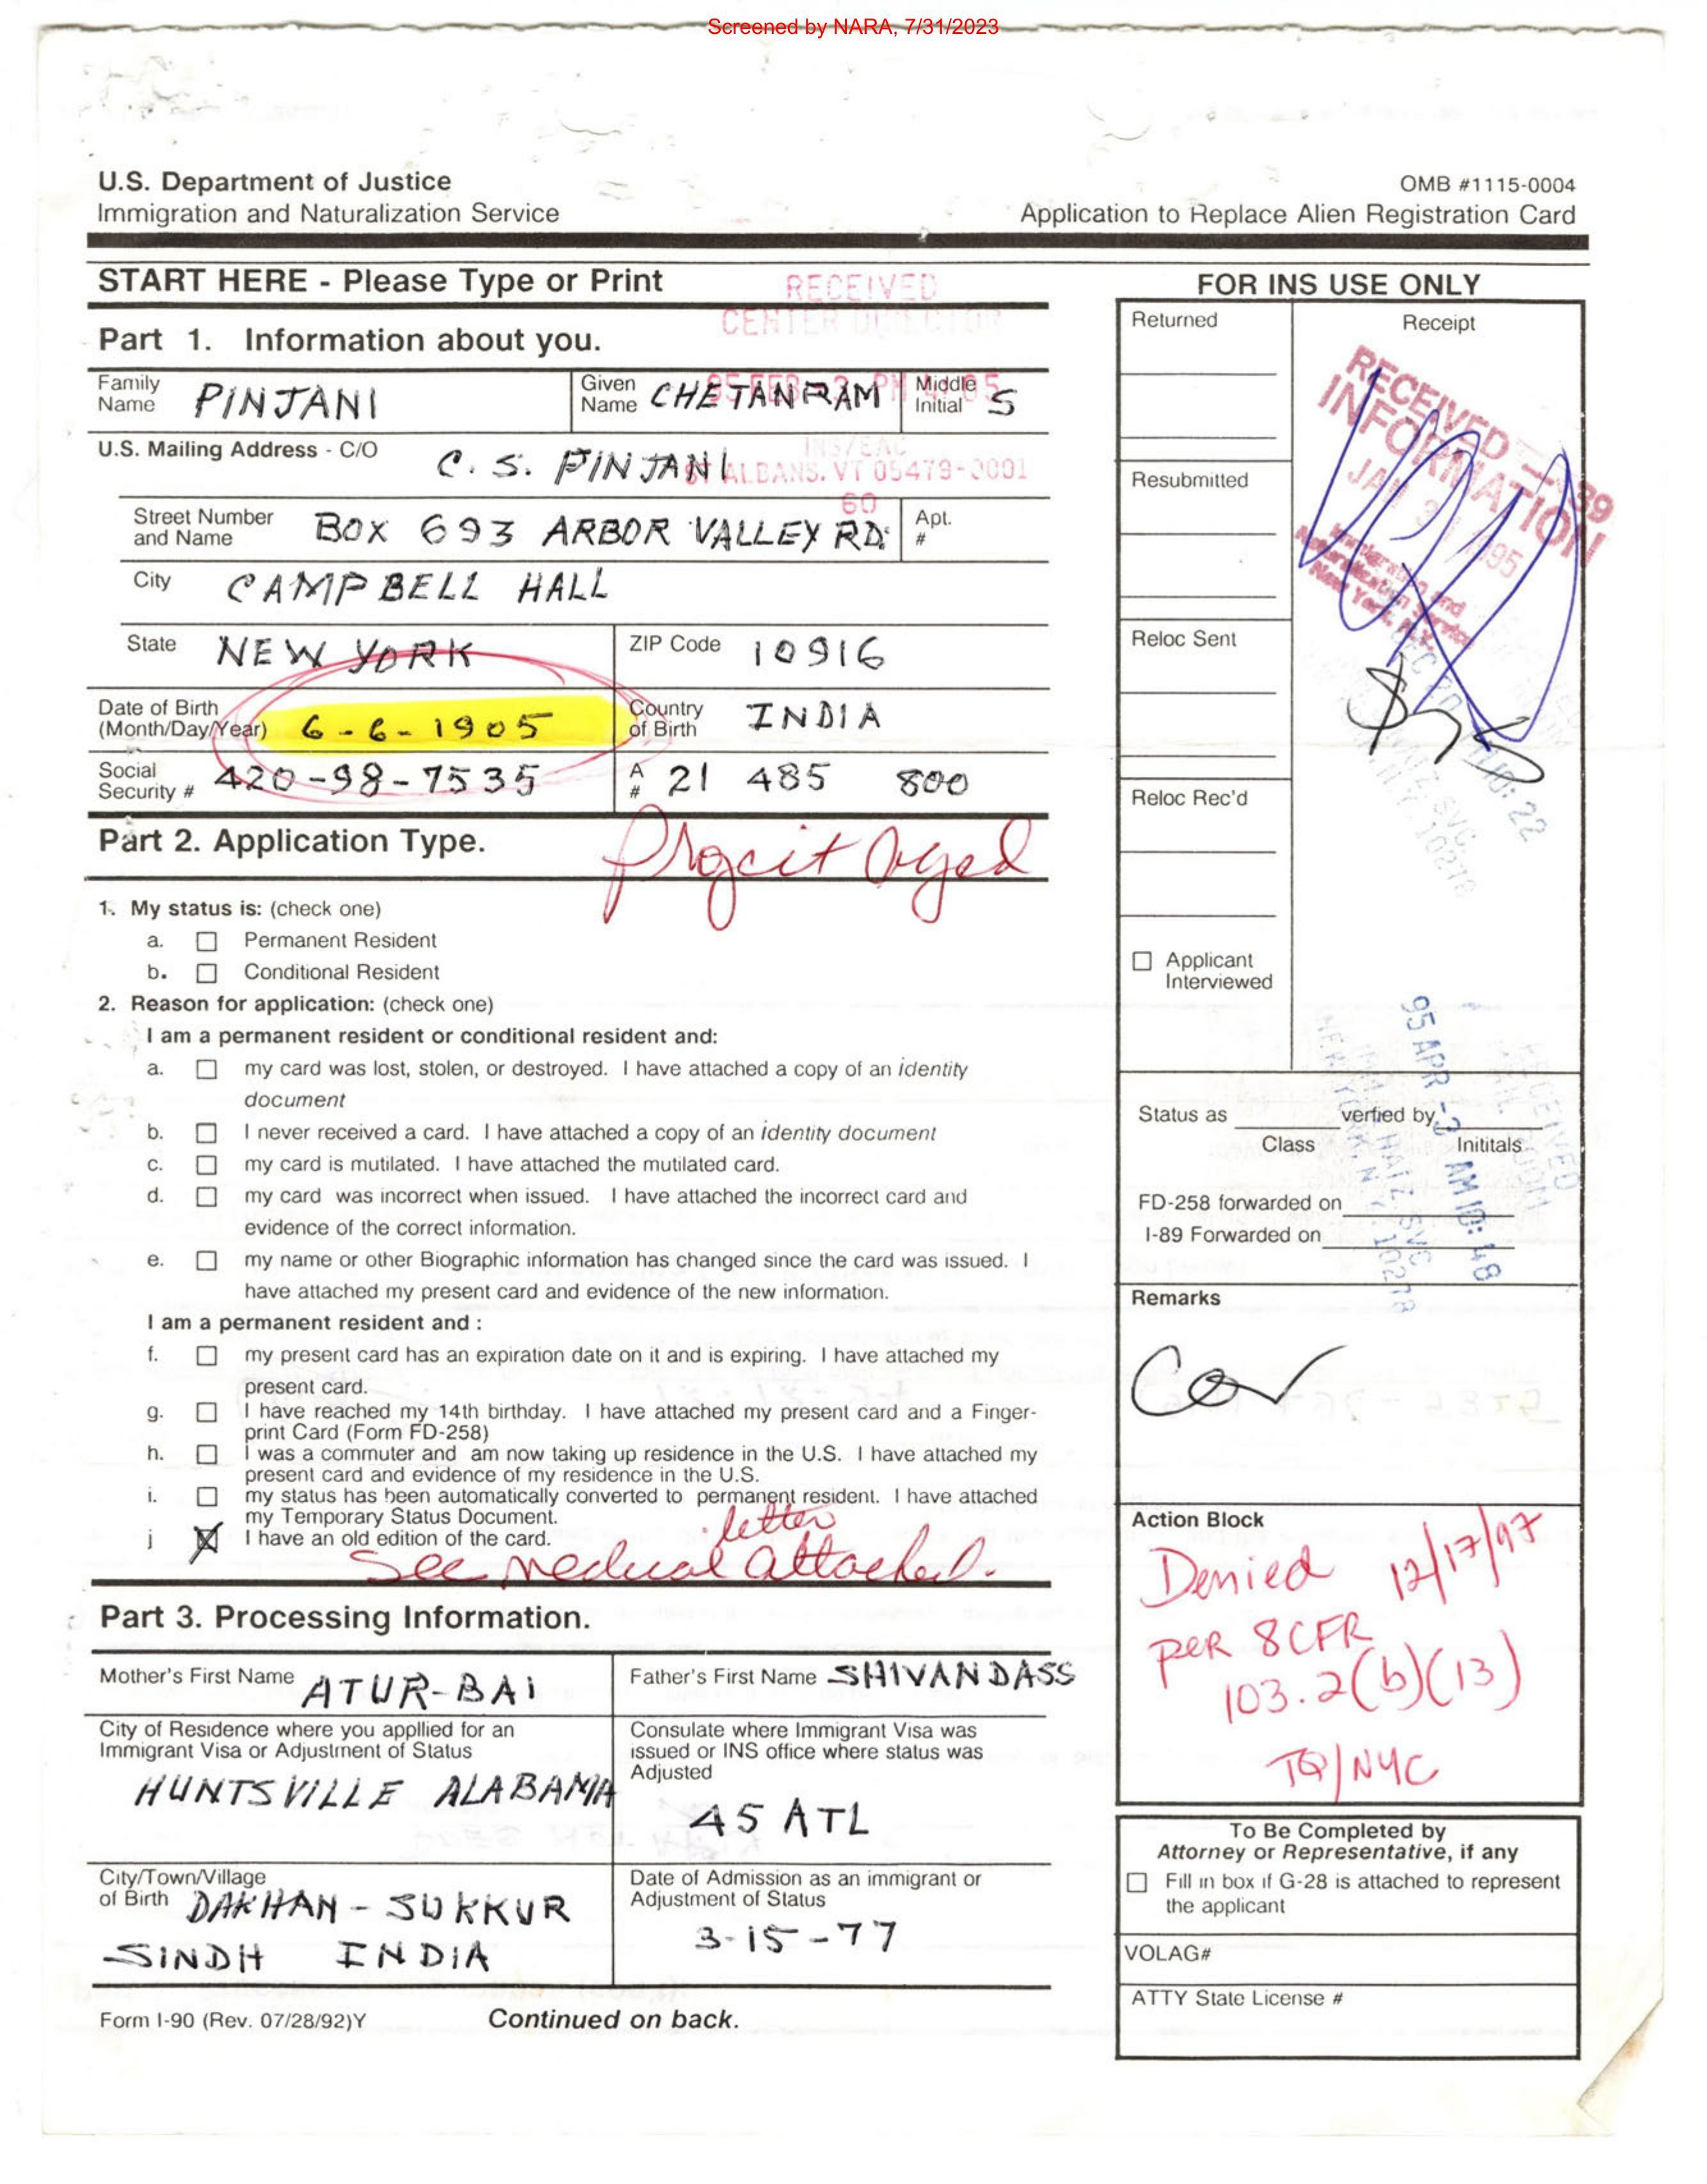 Screened by NARA, 7/31/2023
U.S. Department of Justice
Immigration and Naturalization Service
OMB #1115-0004
Application to Replace Alien Registration Card
START HERE - Please Type or Print
RECEIVED
CENTER DIRECTOR
95 FEB -3 PM 4:05
INS/EAC
ST ALBANS. VT 05479-0001
60
Part 1. Information about you.
Family Name PINJANI
Given Name CHETANRAM
Middle Initial S
U.S. Mailing Address - C/O C. S. PINJANI
Street Number and Name BOX 693 ARBOR VALLEY RD.
Apt. #
City CAMPBELL HALL
State NEW YORK
ZIP Code 10916
Date of Birth (Month/Day/Year) 6-6-1905
Country of Birth INDIA
Social Security # 420-98-7535
A # 21 485 800
Part 2. Application Type.
Projcit Aged
1. My status is: (check one)
a. Permanent Resident
b. Conditional Resident
2. Reason for application: (check one)
I am a permanent resident or conditional resident and:
a. my card was lost, stolen, or destroyed. I have attached a copy of an identity
document
b. I never received a card. I have attached a copy of an identity document
c. my card is mutilated. I have attached the mutilated card.
d. my card was incorrect when issued. I have attached the incorrect card and
evidence of the correct information.
e. my name or other Biographic information has changed since the card was issued. I
have attached my present card and evidence of the new information.
I am a permanent resident and :
f. my present card has an expiration date on it and is expiring. I have attached my
present card.
g. I have reached my 14th birthday. I have attached my present card and a Finger-
print Card (Form FD-258)
h. I was a commuter and am now taking up residence in the U.S. I have attached my
present card and evidence of my residence in the U.S.
i. my status has been automatically converted to permanent resident. I have attached
my Temporary Status Document.
j X I have an old edition of the card.
letter
See medical attached.
Part 3. Processing Information.
Mother's First Name ATUR-BAI
Father's First Name SHIVANDASS
City of Residence where you appllied for an
Immigrant Visa or Adjustment of Status
HUNTSVILLE ALABAMA
Consulate where Immigrant Visa was
issued or INS office where status was
Adjusted
45 ATL
City/Town/Village
of Birth DAKHAN - SUKKUR
SINDH INDIA
Date of Admission as an immigrant or
Adjustment of Status
3-15-77
Form I-90 (Rev. 07/28/92)Y
Continued on back.
FOR INS USE ONLY
Returned
Receipt
RECEIVED
INFORMATION
JAN 31 1995
Immigration and
Naturalization Service
New York, N.Y.
Resubmitted
Reloc Sent
Reloc Rec'd
Applicant
Interviewed
95 APR -3 AM 10:48
Status as
Class
verfied by
Inititals
FD-258 forwarded on
I-89 Forwarded on
Remarks
Action Block
Denied 12/17/97
PER 8CFR
103.2(b)(13)
TQ/NYC
To Be Completed by
Attorney or Representative, if any
Fill in box if G-28 is attached to represent
the applicant
VOLAG#
ATTY State License #